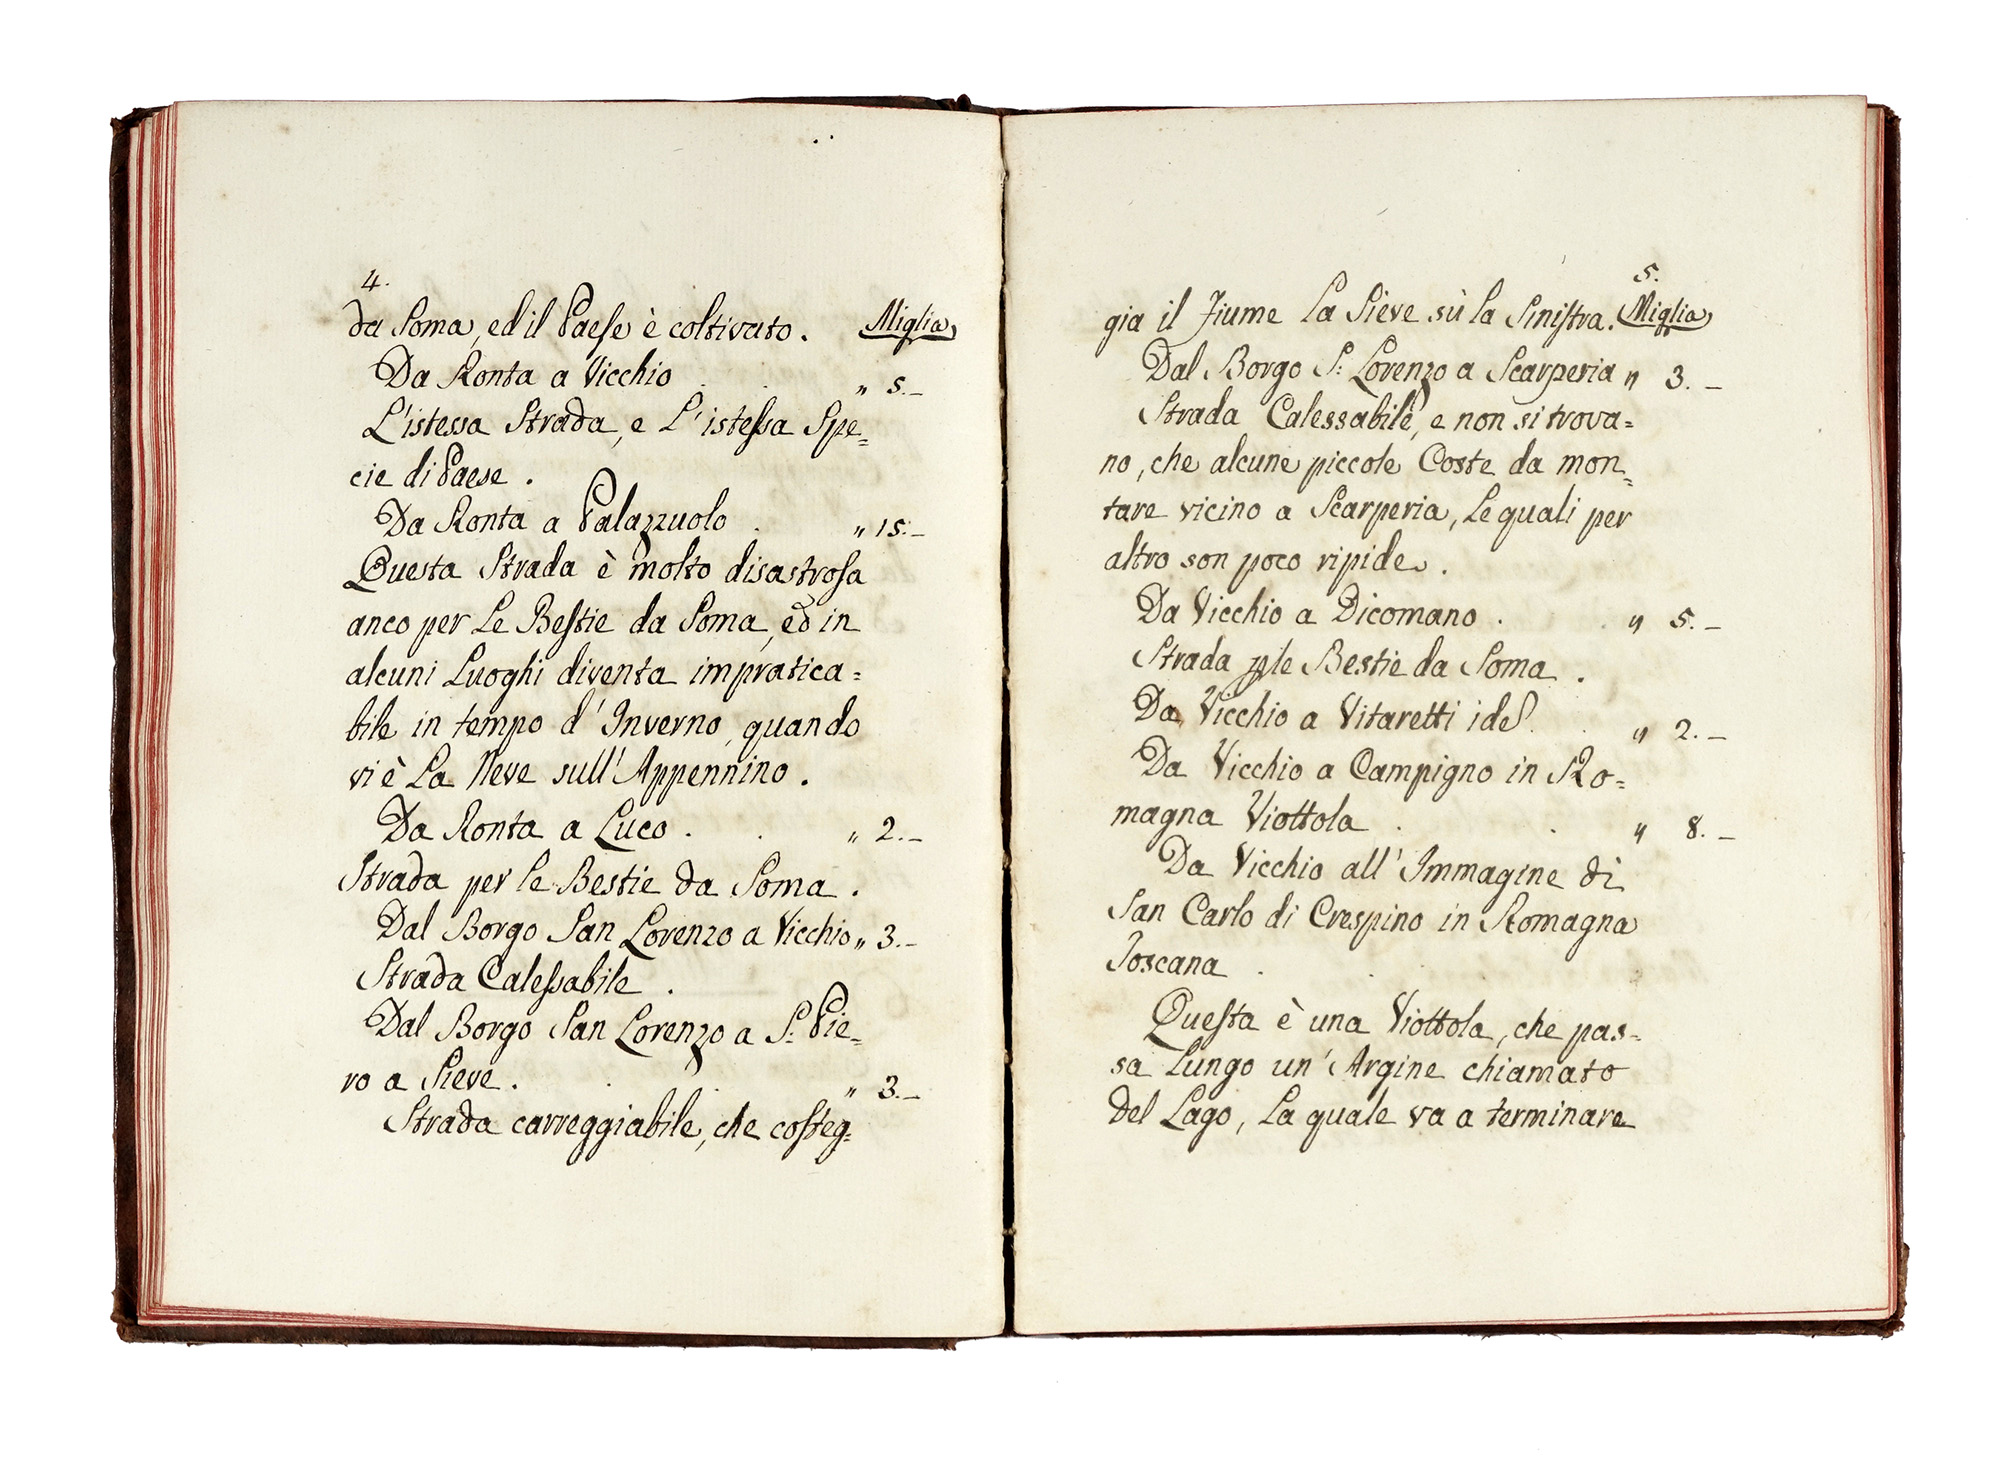 4.
da Soma, ed il Paese è coltivato. Miglia
Da Ronta a Vicchio . . " 5.—
L'istessa Strada, e L'istessa Spe=
cie di Paese.
Da Ronta a Palazzuolo . " 15.—
Questa Strada è molto disastrosa
anco per Le Bestie da Soma, ed in
alcuni Luoghi diventa impratica=
bile in tempo d'Inverno, quando
vi è La Neve sull'Appennino.
Da Ronta a Luco . . " 2.—
Strada per le Bestie da Soma.
Dal Borgo San Lorenzo a Vicchio " 3.—
Strada Calessabile.
Dal Borgo San Lorenzo a S: Pie=
ro a Sieve . . " 3.—
Strada carreggiabile, che costeg=
5.
gia il Fiume La Sieve sù la Sinistra. Miglia
Dal Borgo S: Lorenzo a Scarperia " 3.—
Strada Calessabile, e non si trova=
no, che alcune piccole Coste da mon=
tare vicino a Scarperia, Le quali per
altro son poco ripide.
Da Vicchio a Dicomano . " 5.—
Strada ple Bestie da Soma.
Da Vicchio a Vitaretti id . " 2.—
Da Vicchio a Campigno in Ro=
magna Viottola . . " 8.—
Da Vicchio all'Immagine di
San Carlo di Crespino in Romagna
Toscana . .
Questa è una Viottola, che pas=
sa Lungo un'Argine chiamato
del Lago, La quale va a terminare